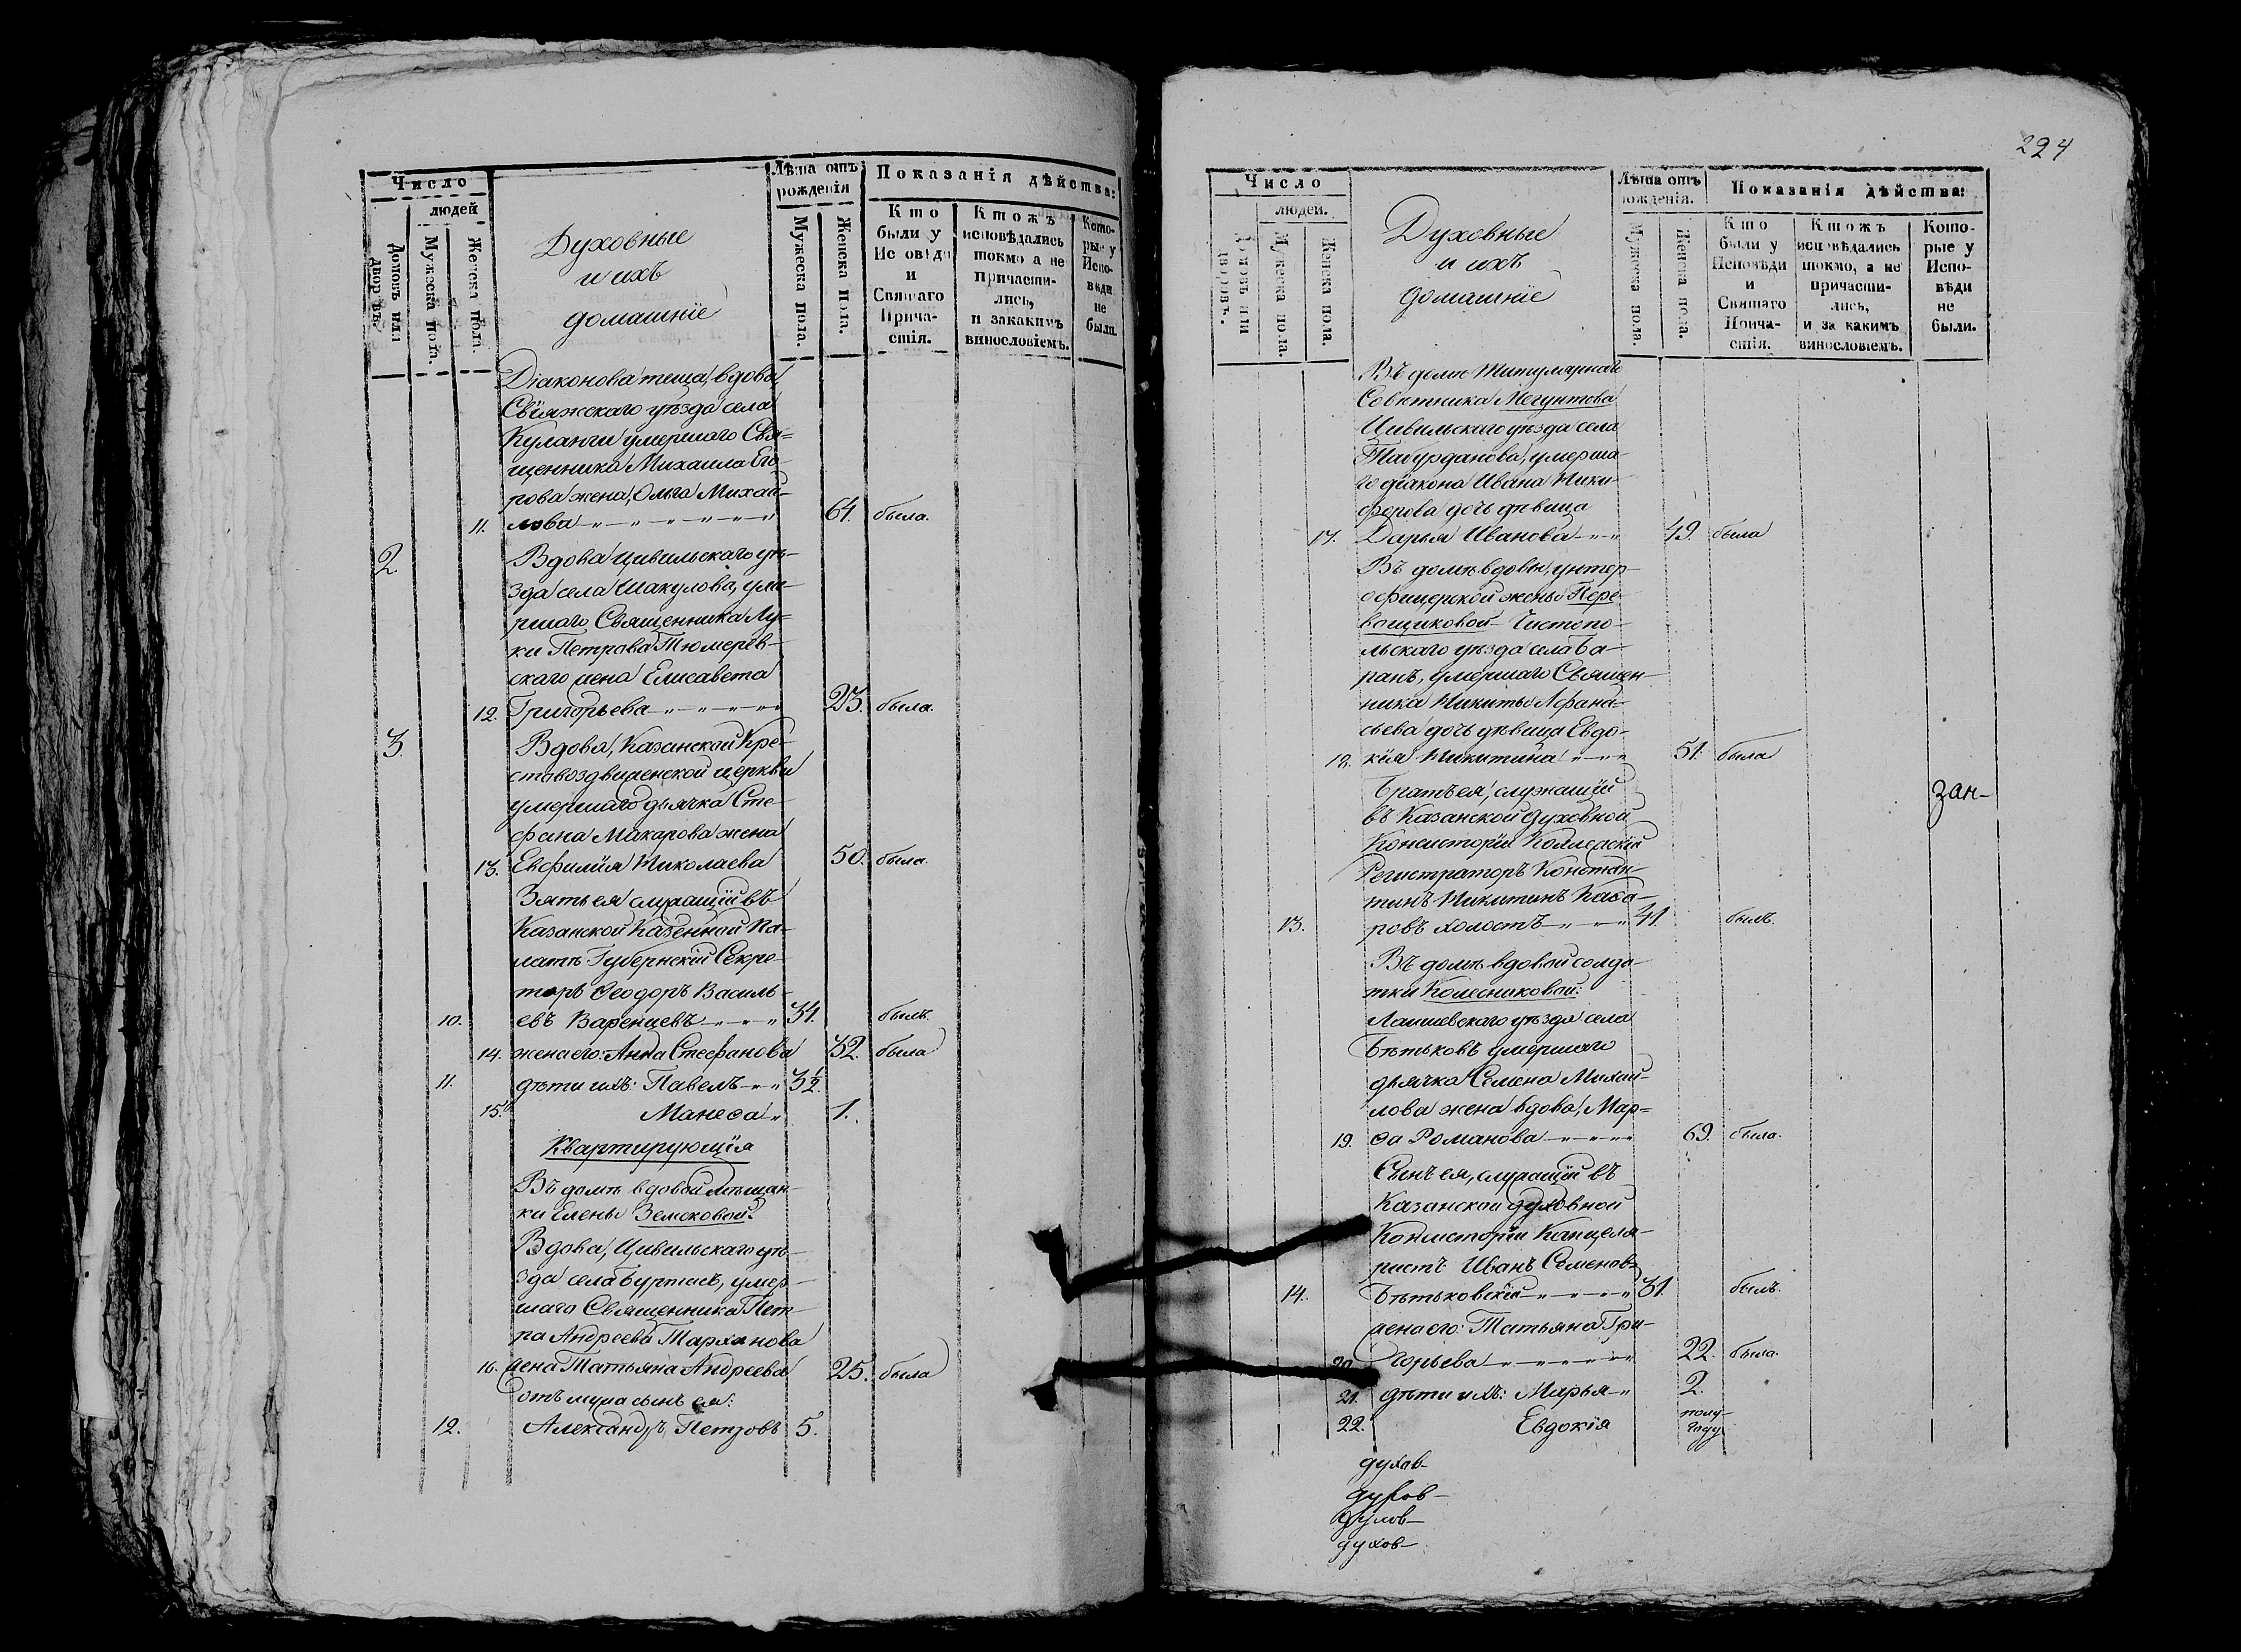 Число
людей
Домовъ или дворовъ.
Мужеска пола.
Женска пола.
Духовные
и ихъ
домашнїе
Лѣта отъ
рожденія
Мужеска пола.
Женска пола.
Показанія дѣйства:
Кто
были у
Исповѣди
и
Святаго
Прича-
стія.
Ктожъ
исповѣдались
токмо а не
причасти-
лись,
и закакимъ
винословіемъ.
Кото-
рые у
Испо-
вѣди
не
были.
Діаконова теща, вдова,
Свіяжскаго уѣзда села
Куланги умершаго Свя=
щенника Михаила Его-
рова жена, Ольга Михай-
11. лова 64. была.
2. Вдова Цивильскаго уѣ-
зда села Шакулова, уме-
ршаго Священника Лу=
ки Петрова Тюмерев-
скаго жена Елисавета
12. Григорьева 23. была.
3. Вдова, Казанской Кре-
стовоздвиженской церкви
умершаго дьячка Сте-
фана Макарова жена
13. Евфимія Николаева 50. была.
Зять ея служащій въ
Казанской Казенной Па-
латѣ Губернскій Секре-
тарь Ѳеодоръ Василь-
10. евъ Варенцевъ 31. былъ.
14. жена его: Анна Стефанова 32. была
11. дѣти ихъ: Павелъ 3½.
15. 1.
Квартирующія
Въ домѣ вдовой мѣщан-
ки Елены Земсковой:
Вдова, Цивильскаго уѣ-
зда села Буртасъ, умер-
шаго Священника Пет-
ра Андреева Тарханова
16. жена Татьяна Андреева 25. была
отъ мужа сынъ ея:
12. Александръ Петровъ 5.
224
Число
людей.
Домовъ или дворовъ.
Мужеска пола.
Женска пола.
Духовные
и ихъ
домашнїе
Лѣта отъ
рожденія.
Мужеска пола.
Женска пола.
Показанія дѣйства:
Кто
были у
Исповѣди
и
Святаго
Прича-
стія.
Ктожъ
исповѣдались
токмо, а не
причасти-
лись,
и за какимъ
винословіемъ.
Кото-
рые у
Испо-
вѣди
не
были.
Въ домѣ Титулярнаго
Совѣтника
Цивильскаго уѣзда села
Табурданова, умерша-
го діакона Ивана Ники-
форова дочь дѣвица
17. Дарья Иванова 49. была
Въ домѣ вдовы, унтер-
офицерской жены Пере-
вощиковой Чистопо-
льскаго уѣзда села Ба-
ранъ, умершаго Священ-
ника Никиты Афана-
сьева дочь дѣвица Евдо-
18. кія Никитина 51. была
Братъ ея, служащій зан-
въ Казанской Духовной
Консисторіи Коллежскій
Регистраторъ Констан-
тинъ Никитинъ
13. ровъ холостъ 41. былъ.
Въ домѣ вдовой солда-
тки Колесниковой:
Лаишевскаго уѣзда села
Бѣтьковъ умершаго
дьячка Семена Михай-
лова жена вдова, Мар=
19. ѳа Романова 69. была.
Сынъ ея, служащій въ
Казанской Духовной
Консисторіи Канцеля-
ристъ Иванъ Семеновъ
14. Бѣтьковскій 31. былъ.
жена его: Татьяна Гри-
20. горьева 22. была.
21. дѣти ихъ: Марья 2.
22. Евдокія полу-
году
духов-
духов-
духов-
духов-